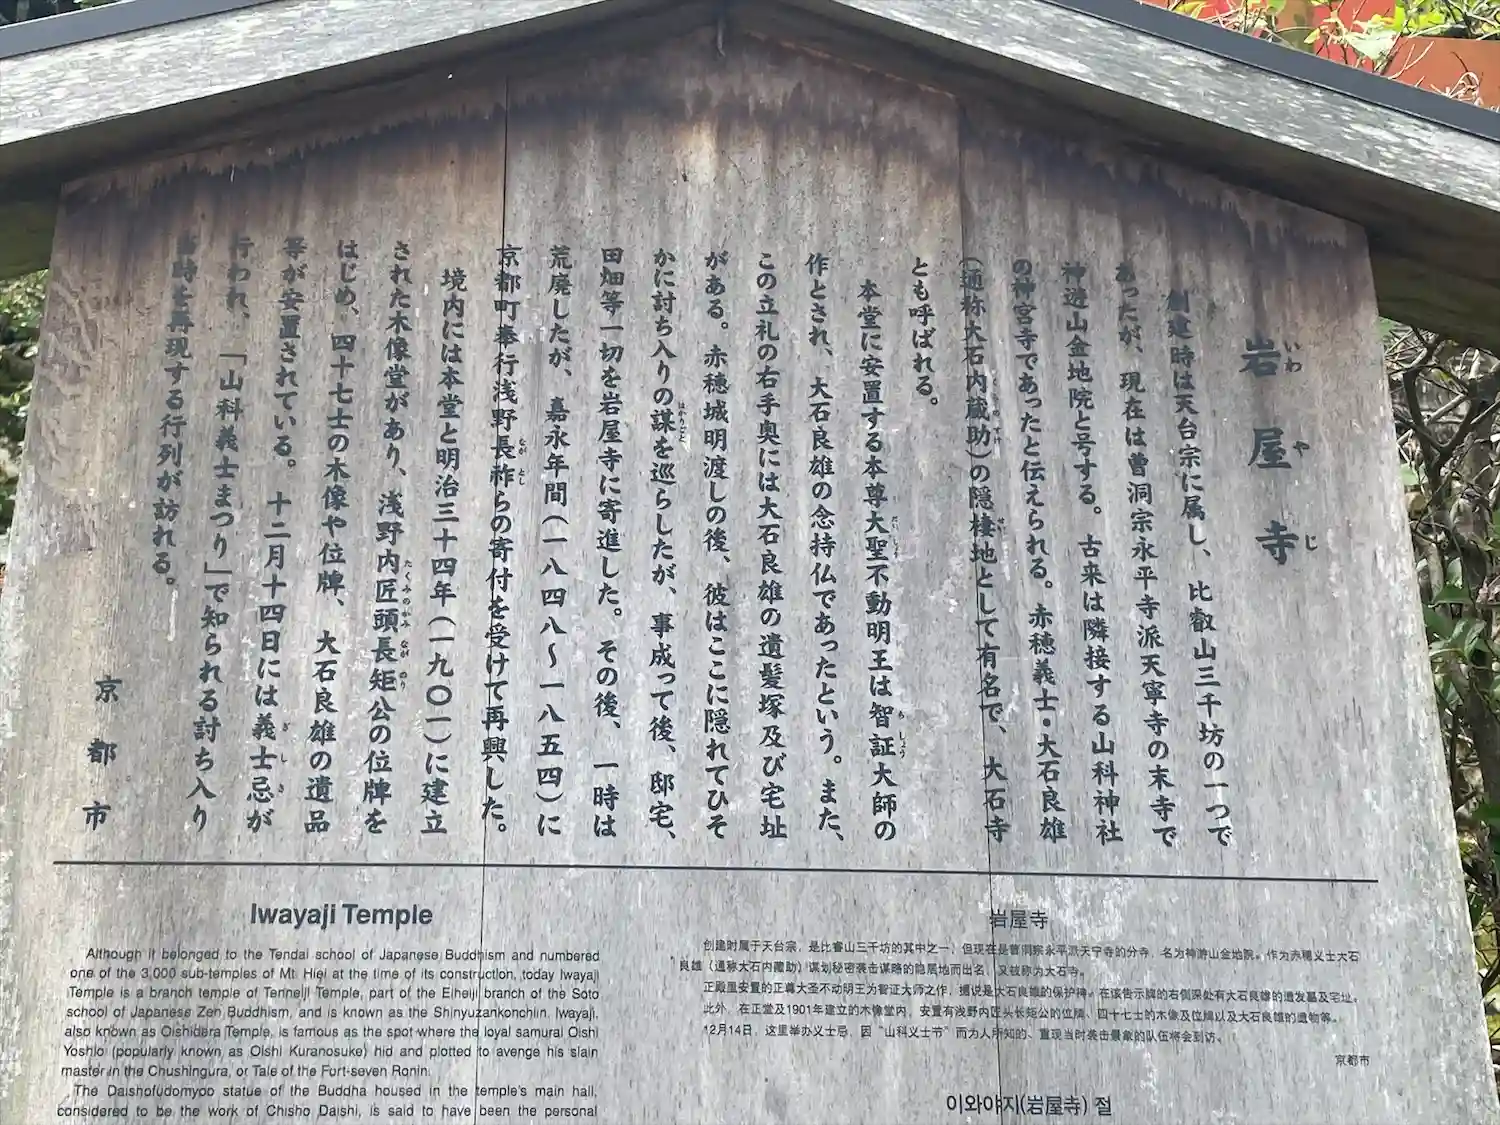 岩屋寺
創建時は天台宗に属し、比叡山三千坊の一つで
あったが、現在は曹洞宗永平寺派天寧寺の末寺で
神遊山金地院と号する。古来は隣接する山科神社
の神宮寺であったと伝えられる。赤穂義士・大石良雄
(通称大石内蔵助)の隠棲地として有名で、大石寺
とも呼ばれる。
本堂に安置する本尊大聖不動明王は智証大師の
作とされ、大石良雄の念持仏であったという。また、
この立札の右手奥には大石良雄の遺髪塚及び宅址
がある。赤穂城明渡しの後、彼はここに隠れてひそ
かに討ち入りの謀を巡らしたが、事成って後、邸宅、
田畑等一切を岩屋寺に寄進した。その後、一時は
荒廃したが、嘉永年間(一八四八〜一八五四)に
京都町奉行浅野長祚らの寄付を受けて再興した。
境内には本堂と明治三十四年(一九〇一)に建立
された木像堂があり、浅野内匠頭長矩公の位牌を
はじめ、四十七士の木像や位牌、大石良雄の遺品
等が安置されている。十二月十四日には義士忌が
行われ、「山科義士まつり」で知られる討ち入り
当時を再現する行列が訪れる。
京都市
Iwayaji Temple
Although it belonged to the Tendai school of Japanese Buddhism and numbered
one of the 3,000 sub-temples of Mt. Hiei at the time of its construction, today Iwayaji
Temple is a branch temple of Tenneiji Temple, part of the Eiheiji branch of the Soto
school of Japanese Zen Buddhism, and is known as the Shinyuzankonchiin. Iwayaji,
also known as Oishidera Temple, is famous as the spot where the loyal samurai Oishi
Yoshio (popularly known as Oishi Kuranosuke) hid and plotted to avenge his slain
master in the Chushingura, or Tale of the Fort-seven Ronin.
The Daishofudomyoo statue of the Buddha housed in the temple's main hall,
considered to be the work of Chisho Daishi, is said to have been the personal
岩屋寺
创建时属于天台宗，是比睿山三千坊的其中之一，但现在是曹洞宗永平派天宁寺的分寺，名为神游山金地院。作为赤穗义士大石
良雄（通称大石内藏助）谋划秘密袭击谋略的隐居地而出名，又被称为大石寺。
正殿里安置的正尊大圣不动明王为智证大师之作，据说是大石良雄的保护神。在该告示牌的右侧深处有大石良雄的遗发墓及宅址。
此外，在正堂及1901年建立的木像堂内，安置有浅野内匠头长矩公的位牌、四十七士的木像及位牌以及大石良雄的遗物等。
12月14日，这里举办义士忌，因“山科义士节”而为人所知的、重现当时袭击景象的队伍将会到访。
京都市
이와야지(岩屋寺) 절